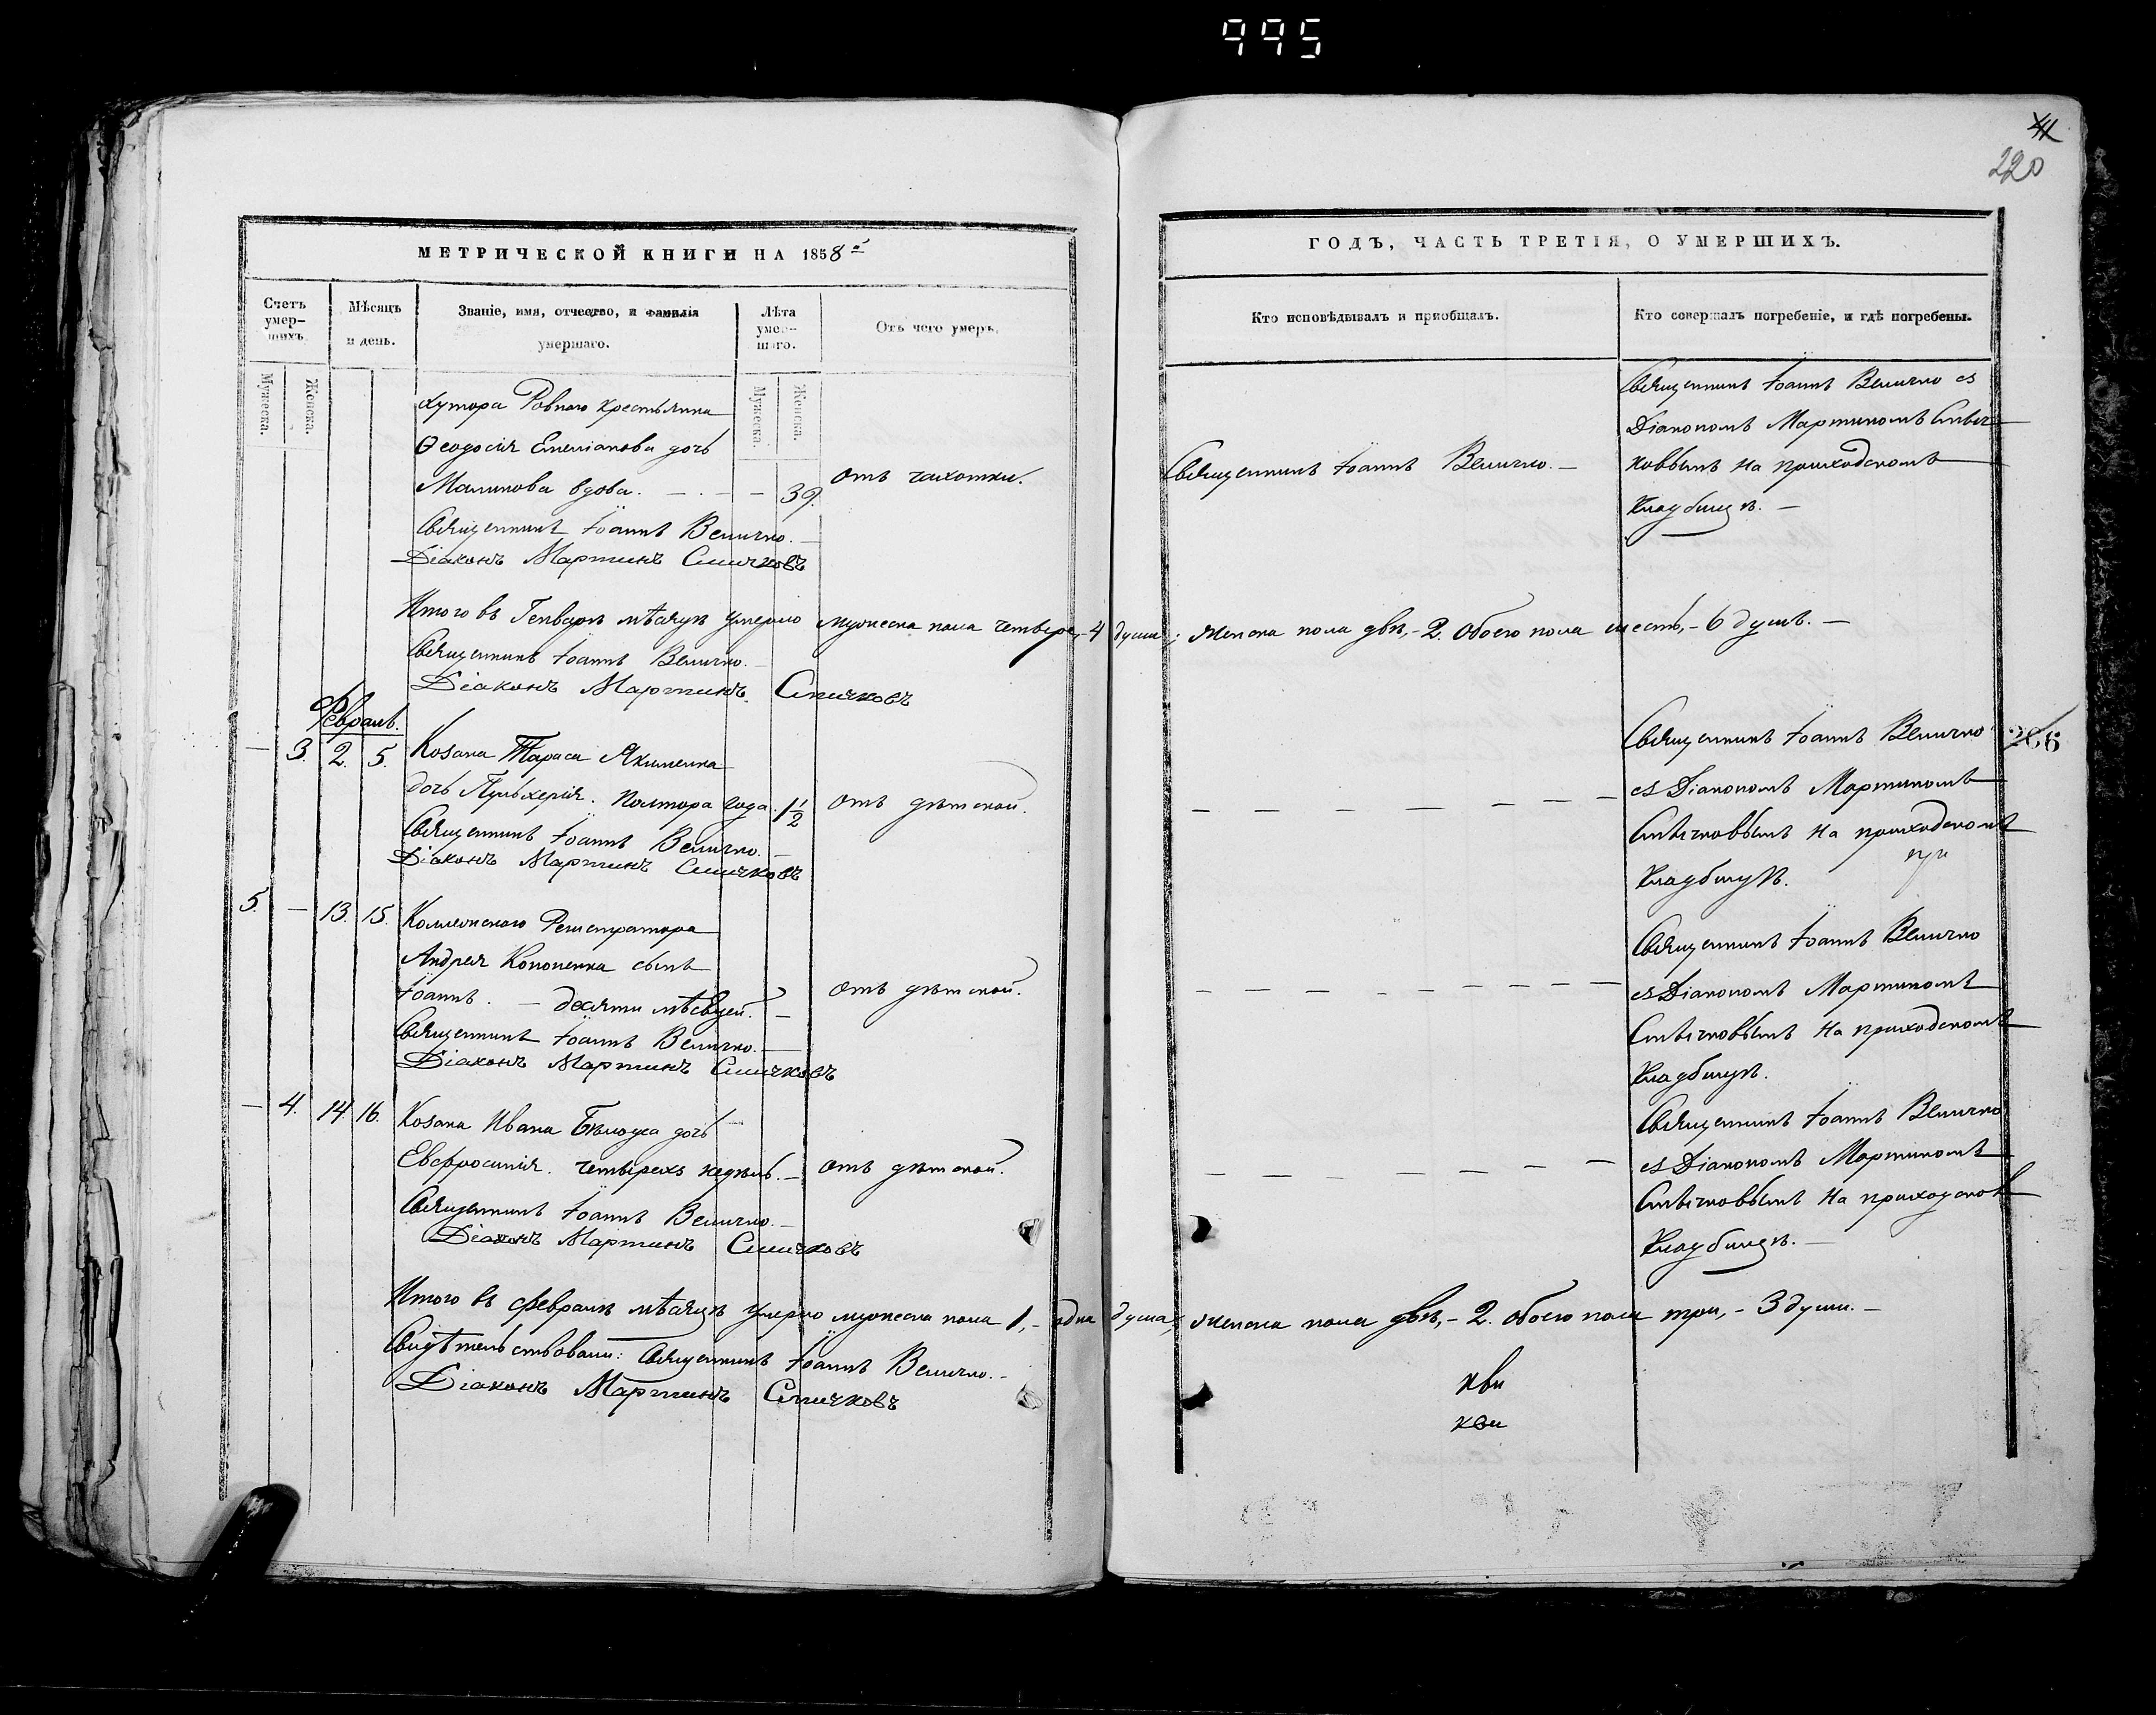 995
41
220
МЕТРИЧЕСКОЙ КНИГИ НА 1858й
ГОДЪ, ЧАСТЬ ТРЕТІЯ, О УМЕРШИХЪ.
Счетъ умер-шихъ.
Мѣсяцъ и день.
Званіе, имя, отчество, и фамилія умершаго.
Лѣта умер-шаго.
Отъ чего умеръ.
Кто исповѣдывалъ и пріобщалъ.
Кто совершалъ погребеніе, и гдѣ погребены.
Мужеска.
Женска.
Мужеска.
Женска.
хутора Ровнаго крестьянка
Ѳеодосія Емеліанова дочь
Малинова вдова. — . — — 39.
отъ чахотки.
Священникъ Іоаннъ Величко. —
Священникъ Іоаннъ Величко съ
Діакономъ Мартиномъ Спич-
ковымъ на приходскомъ
Кладбищѣ. —
Священникъ Іоаннъ Величко. —
Діаконъ Мартинъ Спичковъ
Итого въ Генварѣ мѣсяцѣ умерло мужеска пола четыре,- 4 души; женска пола двѣ,- 2. Обоего пола шесть,- 6 душъ. —
Священникъ Іоаннъ Величко. —
Діаконъ Мартинъ Спичковъ
Февраль.
— 3. 2. 5. Козака Тараса Якименка
дочь Пульхерія. Полтора года. 1½
отъ дѣтской.
Священникъ Іоаннъ Величко
съ Діакономъ Мартиномъ
Спичковымъ на приходскомъ
Кладбищѣ.
266
Священникъ Іоаннъ Величко. —
Діаконъ Мартинъ Спичковъ
5. — 13. 15. Коллежскаго Регистратора
Андрея Кононенка сынъ
Іоаннъ. — десяти мѣсяцей. —
отъ дѣтской.
Священникъ Іоаннъ Величко
съ Діакономъ Мартиномъ
Спичковымъ на приходскомъ
Кладбищѣ.
Священникъ Іоаннъ Величко. —
Діаконъ Мартинъ Спичковъ
— 4. 14. 16. Козака Ивана дочь
Евфросинія. четырехъ недѣль. —
отъ дѣтской.
Священникъ Іоаннъ Величко
съ Діакономъ Мартиномъ
Спичковымъ на приходском
Кладбищѣ. —
Священникъ Іоаннъ Величко. —
Діаконъ Мартинъ Спичковъ
Итого въ Февралѣ мѣсяцѣ умерло мужеска пола 1,- одна душа; женска пола двѣ,- 2. обоего пола три,- 3 души. —
Свидѣтельствовали: Священникъ Іоаннъ Величко. -
Діаконъ Мартинъ Спичковъ